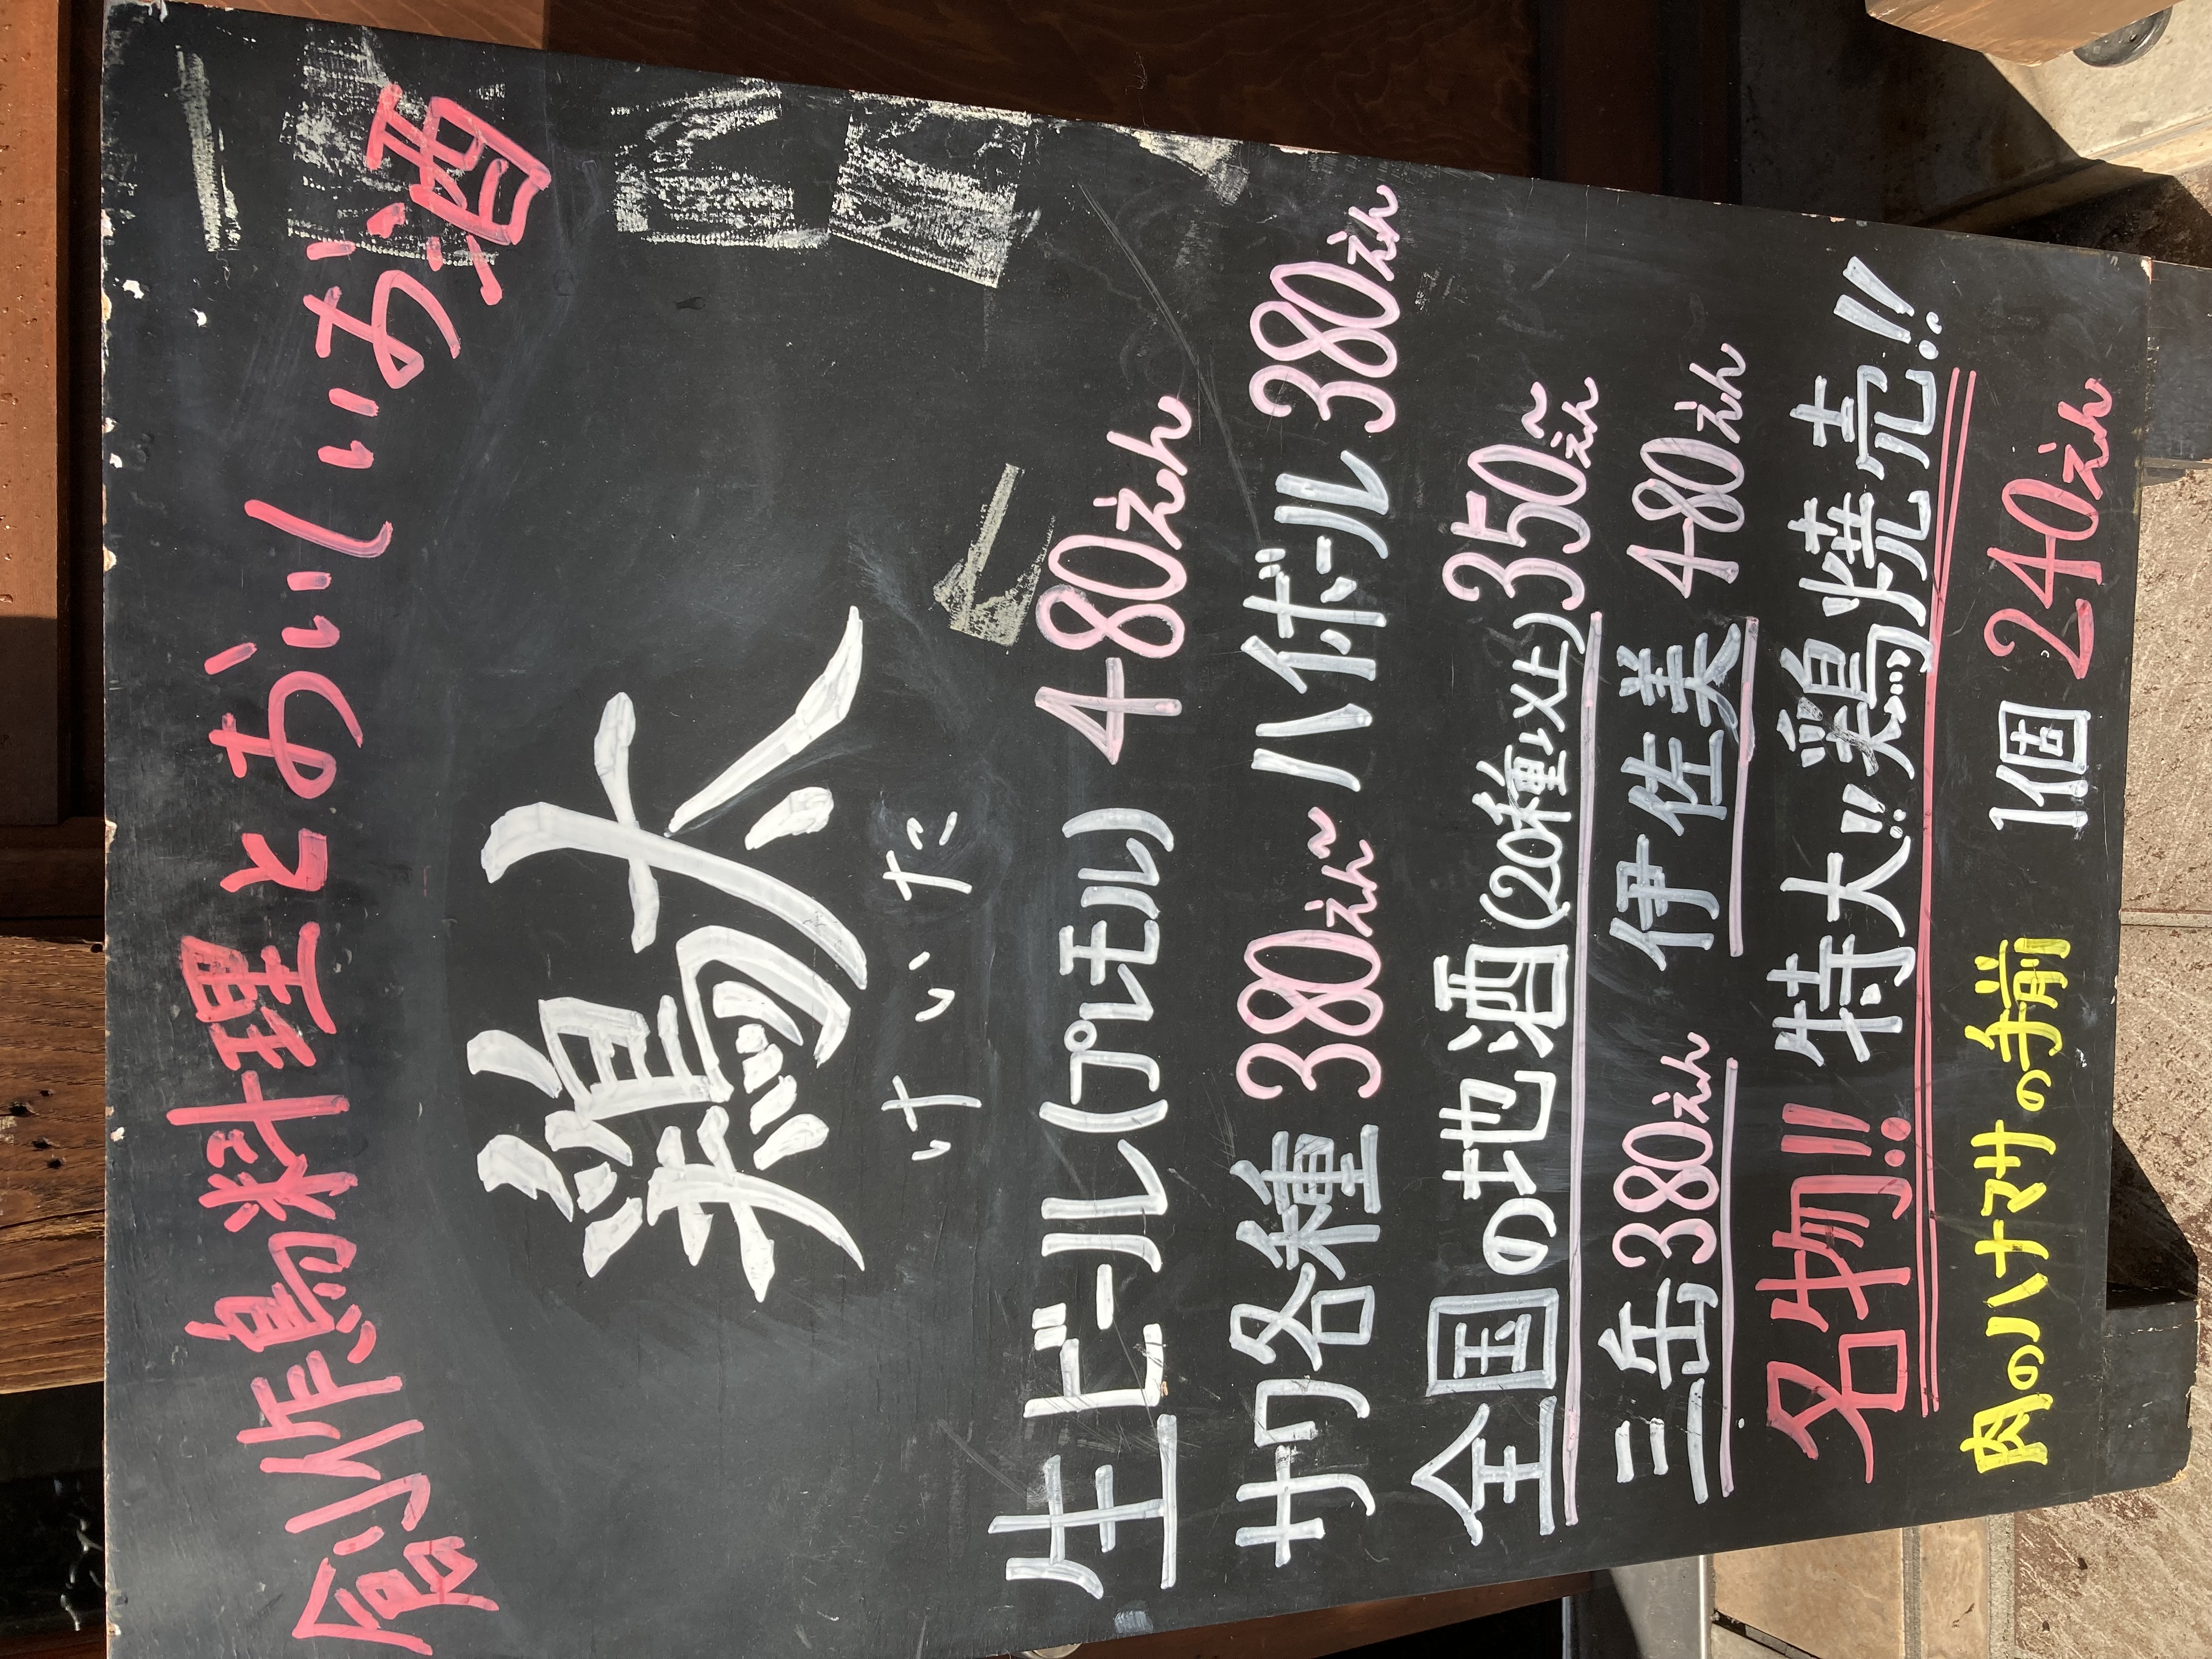 創作鳥料理とおいしいお酒
鶏太
けいた
生ビール(プレモル) 480えん
サワー各種 380えん~ ハイボール 380えん
全国の地酒(20種以上) 350えん~
三岳 380えん 伊佐美 480えん
名物!! 特大!! 鶏焼売!!
肉のハナマサの手前 1個 240えん